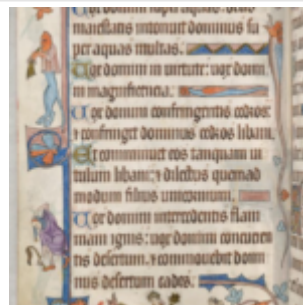 Vox domini super aquas deus
maiestatis intonuit dominus su
per aquas multas.
Vox domini in virtute: vox domi
ni in magnificencia.
Vox domini confringentis cedros:
et confringet dominus cedros libani.
Et comminuet eos tanquam vi
tulum libani: et dilectus quemad
modum filius unicornium.
Vox domini intercidentis flam
mam ignis: vox domini concucien
tis desertum. et commovebit domi
nus desertum cades.